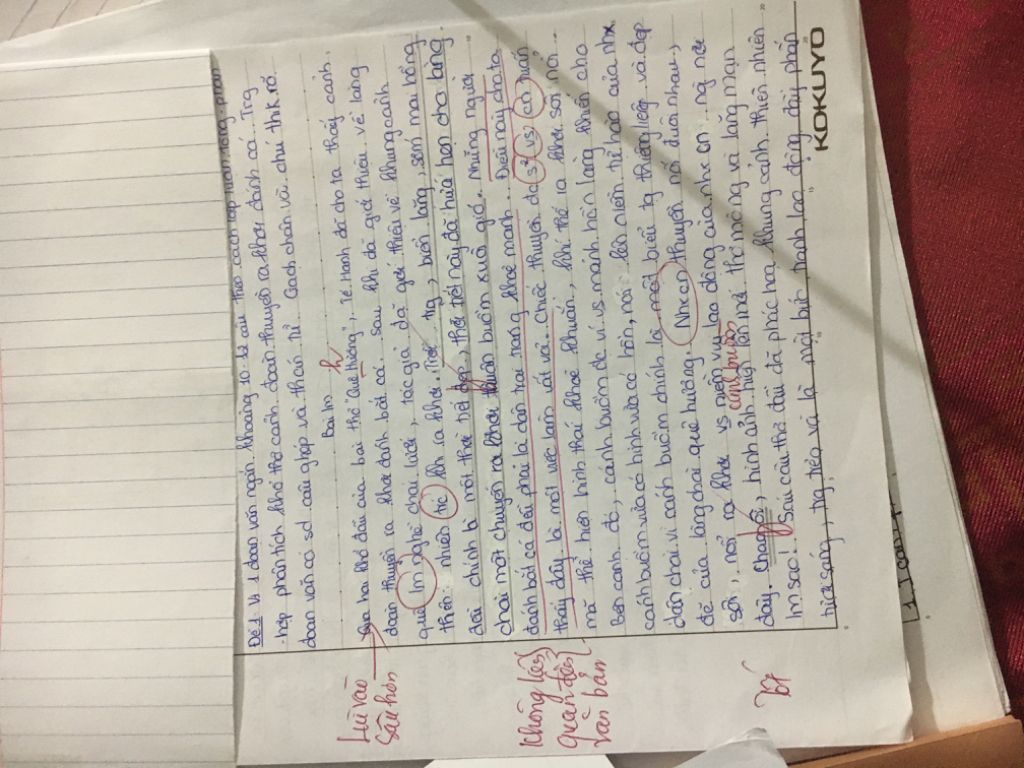 Đề 1: Vt 1 đoạn văn ngắn khoảng 10-12 câu theo cách lập luận tổng-phân
hợp phân tích khổ thơ cảnh đoàn thuyền ra khơi đánh cá. Trg
đoạn văn có sd câu ghép và thán từ. Gạch chân và chú thk rõ.
Bài lm
Lùi vào
sâu hơn
Qua hai khổ đầu của bài thơ "Quê hương", Tế Hanh đã cho ta thấy cảnh
h
đoàn thuyền ra khơi đánh bắt cá. Sau khi đã giới thiệu về làng
quê lm nghề chài lưới, tác giả đã giới thiệu về khung cảnh
thiên nhiên trc khi ra khơi. Trời trg, biển lặng, sớm mai hồng
đều chính là một thời tiết đẹp, thời tiết này đã hứa hẹn cho làng
chài một chuyến ra khơi thuận buồm xuôi gió. Những người
đánh bắt cá đều phải là dân trai tráng khoẻ mạnh. Điều này cho ta
thấy đây là một việc làm rất vả. Chiếc thuyền đc s² vs con tuấn
Không liên
quan đến
văn bản
mã thể hiện hình thái khoẻ khoắn, khí thế ra khơi sôi nổi.
Bên cạnh đó, cánh buồm đc ví vs mảnh hồn làng khiến cho
cánh buồm vừa có hình vừa có hồn, nói lên niềm tự hào của nhx
dân chài vì cánh buồm chính là một biểu tg thiêng liêng và đẹp
đẽ của làng chài quê hương. Nhx con thuyền nối đuôi nhau,
sôi nổi ra khơi vs nhiệm vụ lao động của nhx con ng nơi
cánh buồm
đây. Chao ôi, hình ảnh hiện lên mới thơ mộng và lãng mạn
bf
lm sao! Sáu câu thơ đầu đã phác hoạ khung cảnh thiên nhiên
tươi sáng, trg trẻo và là một bức tranh lao động đầy phấn
KOKUYO